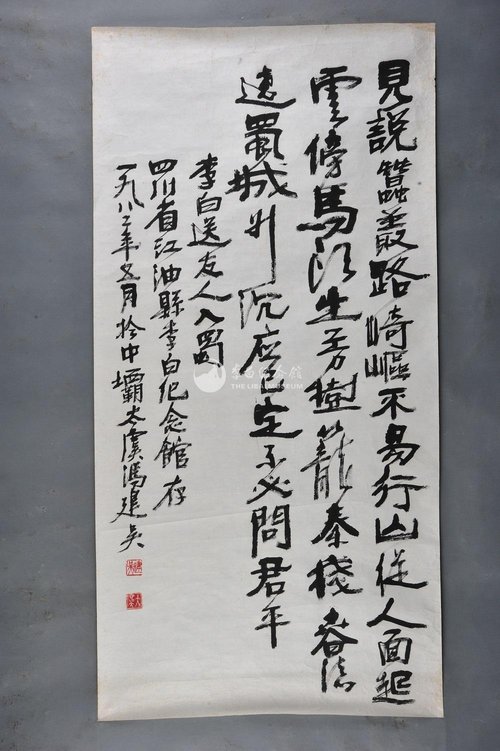 見說蠶叢路崎嶇不易行山從人面起
雲傍馬頭生芳樹籠秦棧春流
遶蜀城升沉應已定不必問君平
李白送友人入蜀
四川省江油縣李白纪念館存
一九八二年五月於中壩太虞馮建吳
李白纪念馆
THE LIBAI MUSEUM